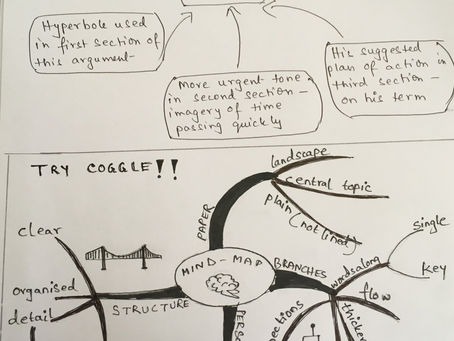 Hyperbole used
in first section of
this argument-
More urgent tone
in second section –
imagery of time
passing quickly
His suggested
plan of action in
third section –
on his term
TRY COGGLE!!
clear
organised
detail
STRUCTURE
MIND-MAP
PAPER
landscape
central topic
plain (not lined)
BRANCHES
words along
single
key
flow
thicker